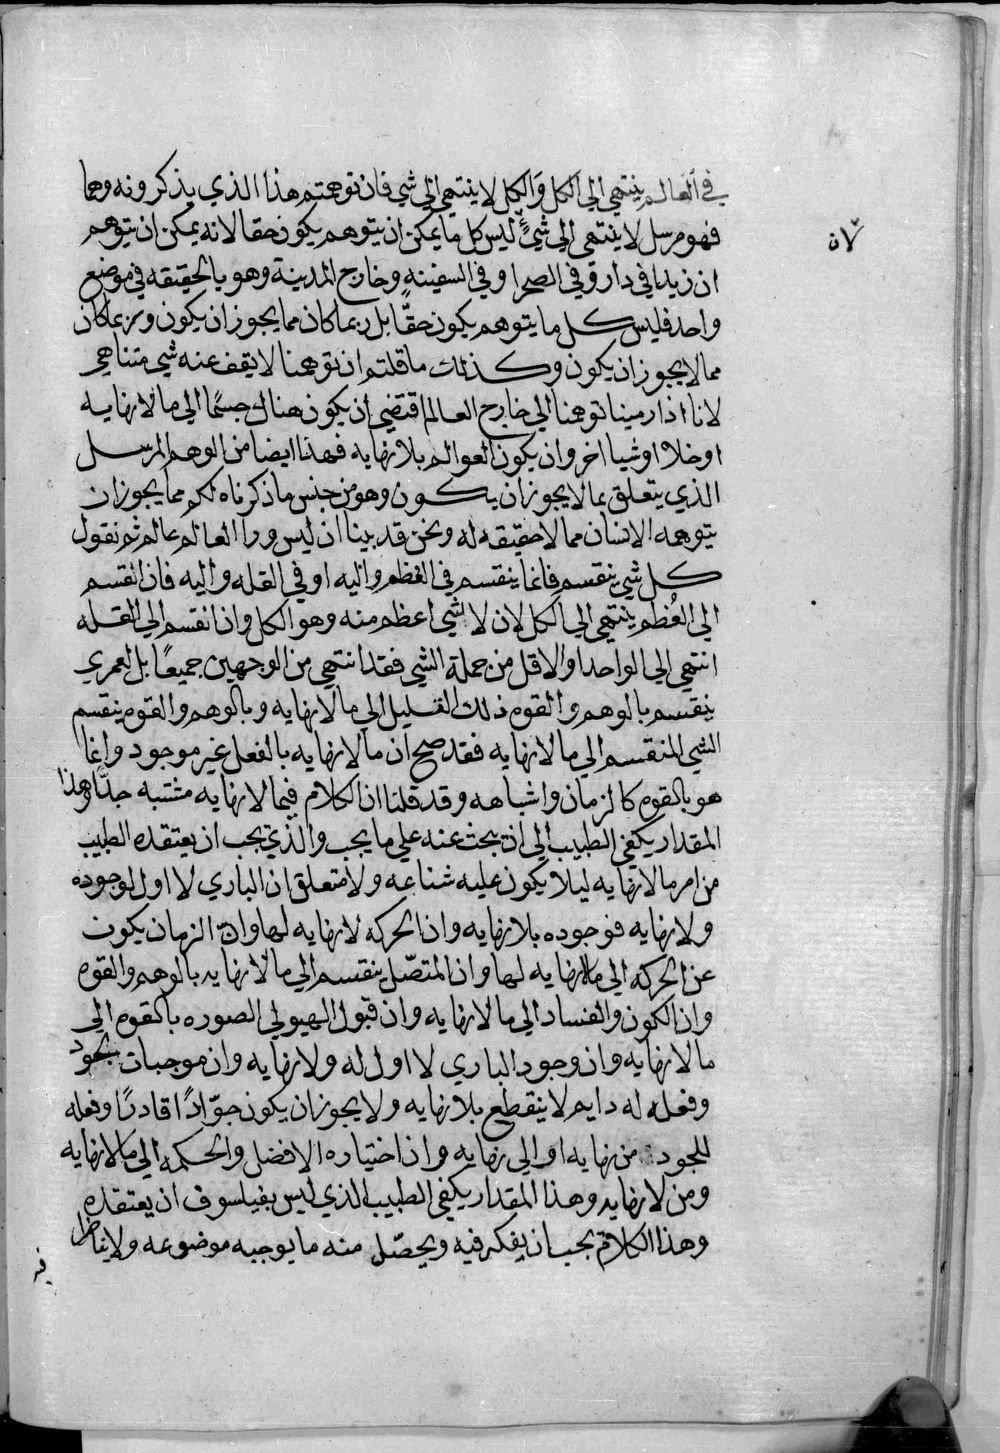 في العالم ينتهي الي الكل والكل لا ينتهي الي شي فان توهمتم هذا الذي يذكرونه وهما
فهو مرسل لا ينتهي الي شيء ليس كل ما يمكن ان يتوهم يكون حقا لانه يمكن ان يتوهم
لان
ان زيدا في دار وفي الصحرا وفي السفينه وخارج المدينة وهو بالحقيقه في موضع
واحد فليس كل ما يتوهم يكون حقّا بل ربما كان مما يجوز ان يكون وربما كان
مما لا يجوز ان يكون وكذلك ما قلتم ان توهمنا لا يقف عنه شي متناهي
لانا اذا رمينا توهمنا الي خارج العالم اقتضي ان يكون هناك جسمًا الي ما لا نهايه
او خلا او شيا اخر وان يكون العوالم بلا نهايه فهذا ايضا من الوهم المرسل
الذي يتعلق بما لا يجوز ان يكون وهو من جنس ما ذكرناه لكم مما يجوز ان
يتوهمه الانسان مما لا حقيقه له ونحن قد بينا ان ليس ورا العالم عالم ثم نقول
كل شي ينقسم فانما ينقسم في العظم واليه او في القله واليه فان انقسم
الي العُظم ينتهي الي الكل لان لا شي اعظم منه وهو الكل وان انقسم الي القله
انتهي الي الواحد او الاقل من جملة الشي فقد انتهي من الوجهين جميعًا بل لعمري
ينقسم بالوهم والقوه ذلك القليل الي ما لا نهايه وبالوهم والقوه ينقسم
الشي المنقسم الي ما لا نهايه فقد صح ان ما لا نهايه بالفعل غير موجود وانما
هو بالقوه كالزمان واشباهه وقد قلنا ان الكلام فيما لا نهايه مشتبه جدّا وهذا
المقدار يكفي الطبيب الي ان يبحث عنه علي ما يجب والذي يجب ان يعتقده الطبيب
من امر ما لا نهايه ليلا يكون عليه شناعه ولا متعلق ان الباري لا اول لوجوده
ولا نهايه فوجوده بلا نهايه وان الحركه لا نهايه لها وانّ الزمان يكون
عن الحركه الي ما لا نهايه لها وان المتصّل ينقسم الي ما لا نهايه بالوهم والقوه
وان الكون والفساد الي ما لا نهايه وان قبول الهيولي الصوره بالقوه الي
ما لا نهايه وان وجود الباري لا اول له ولا نهايه وان موجبات بجود
وفعله له دايم لا ينقطع بلا نهايه ولا يجوز ان يكون جوّادًا قادرًا وفعله
للجود من نهايه او الي نهايه وان اختياره الافضل والحكمه الي ما لا نهايه
ومن لا نهايه وهذا المقدار يكفي الطبيب الذي ليس بفيلسوف ان يعتقده
وهذا الكلام يجب ان يفكر فيه ويحصّل منه ما يوجبه موضوعه ولا يناظر
فيه